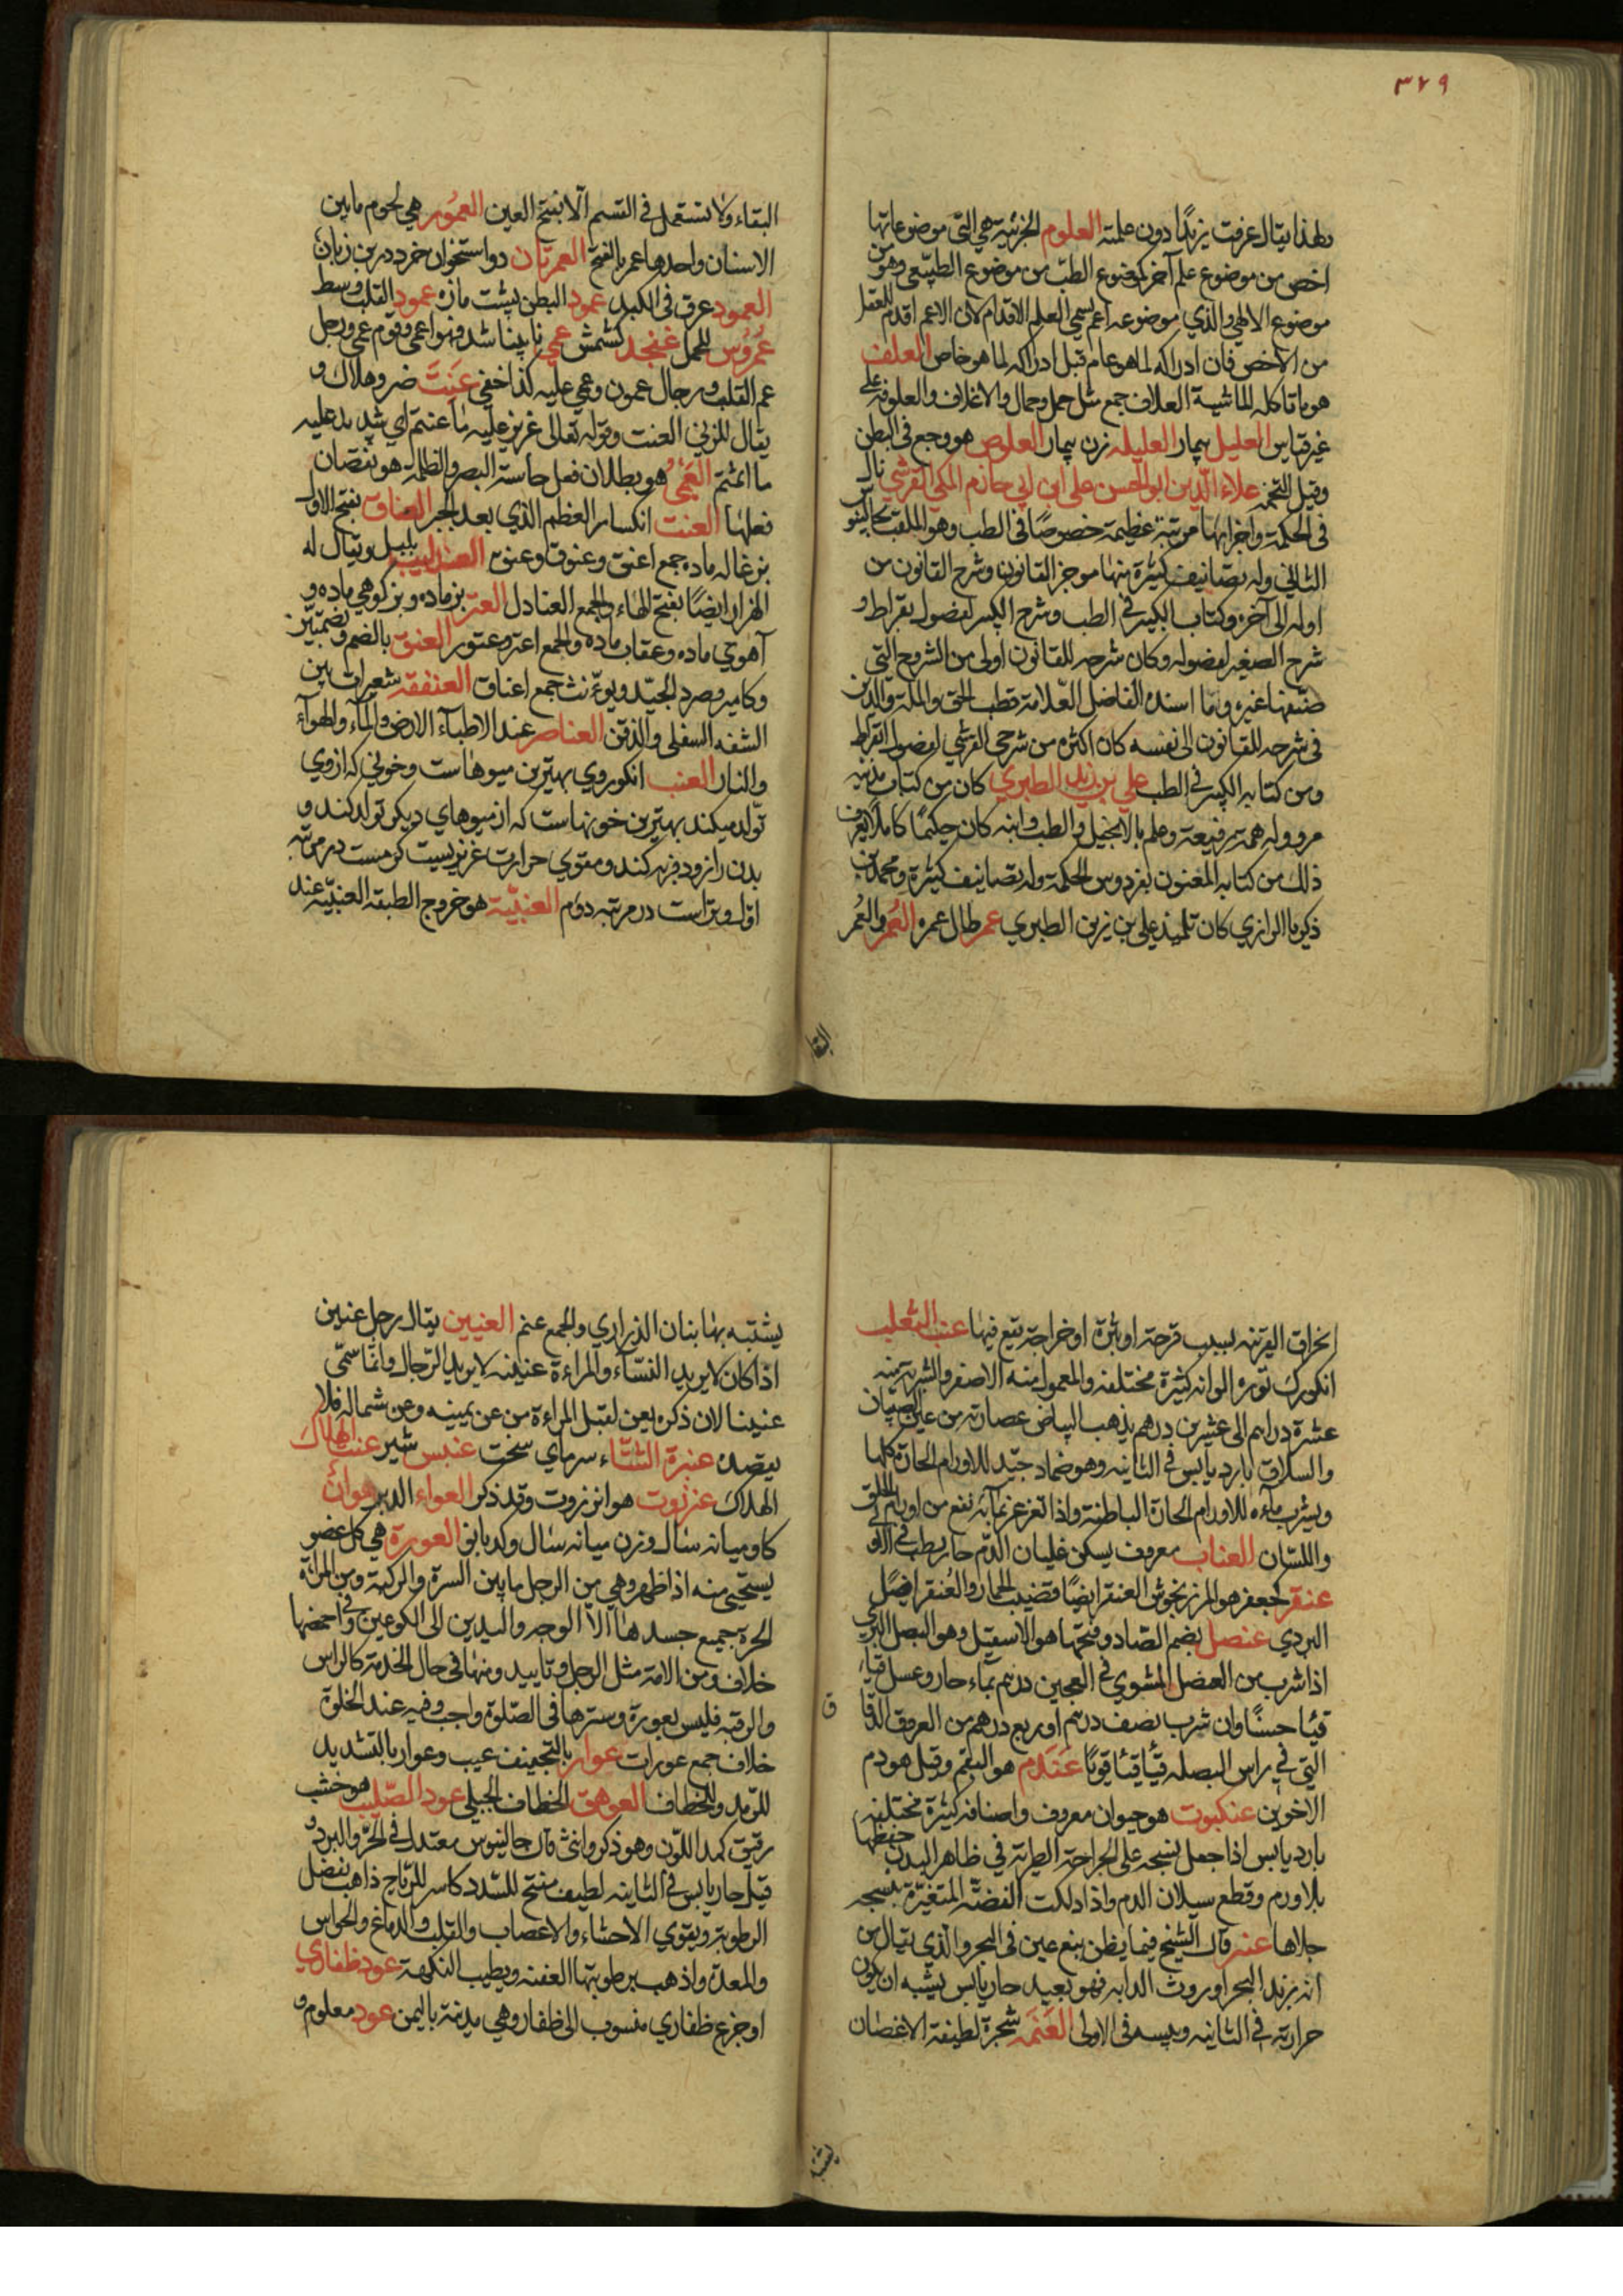 ٣٧٩
ولهذا يقال عرفت زيدًا دون علمته العلوم الجزئية هي التي موضوعاتها
اخص من موضوع علم آخر كموضوع الطب من موضوع الطبيعي وهو من
موضوع الالهي والذي موضوعه اعم يسمى العلم الاقدام لان الاعم اقدم للعقل
من الاخص فان ادراكه لما هو عام قبل ادراكه لما هو خاص العلف
هو ما تاكله الماشية العلاف جمع مثل جمل وجمال والاغلاف والعلوفه على
غير قياس العليل بيمار العليله زن بيمار العلوص هو وجع في البطن
وقيل التخمه علاء الدين ابو الحسن علي ابن ابي حازم المكي القرشي نال
في الحكمة واجزائها مرتبة عظيمة خصوصًا في الطب وهو الملقب بجالينو
الثاني وله تصانيف كثيرة منها موجز القانون وشرح القانون من
اوله الى آخره وكتاب الكبير في الطب وشرح الكبير لفصول بقراط و
شرح الصغير لفصوله وكان شرحه للقانون اولى من الشروح التي
صنفها غيره وما اسنده الفاضل العلامة قطب الحق والملة والدين
في شرحه للقانون الى نفسه كان اكثره من شرحي القرشي لفصول ابقراط
ومن كتابه الكبير في الطب علي بن زيد الطبري كان من كتاب مدينه
مرو وله همة رفيعة وعلم بالانجيل والطب وابنه كان حكيمًا كاملًا يعرف
ذلك من كتابه المعنون بفردوس الحكمة وله تصانيف كثيرة ومحمد بن
ذكريا الرازي كان تلميذ علي بن زيد الطبري عمر طال عمره العُمر والعُمر
البقا
البقاء ولا تستعمل في القسم الا بفتح العين العمور هي لحوم ما بين
الاسنان واحدها عمر بالفتح العمرتان دو استخوان خرد در بن زبان
العمود عرق في الكبد عمود البطن پشت مازه عمود القلب وسط
عمروس للحمل عنجد كشمش عمي نا بينا شد وهو اعمى وقوم عمي ورجل
عم القلب ورجال عمون وعمي عليه كذا خفي عَنِتَ ضر وهلاك و
يقال للزنى العنت وقوله تعالى عزيز عليه ما عنتم اي شديد عليه
ما اثمتم العَمَى هو بطلان فعل حاسة البصر والظلمه هو نقصان
فعلها العنت انكسار العظم الذي بعد الجبر العناق بفتح الاول
بزغاله ماده جمع اعنق وعنوق وعنق العندليب بلبل ويقال له
الهزار ايضًا بفتح الهاء والجمع العنادل العنز بز ماده وبز كوهي ماده و
آهوي ماده وعقاب ماده والجمع اعنز وعنوز العنق بالضم وبضمتين
وكامير وصرد الجيد ويؤنث جمع اعناق العنفقه شعيرات بين
الشفه السفلى والذقن العناصر عند الاطباء الارض والماء والهواء
والنار العنب انكور وي بهترين ميوهاست وخوني كه از وي
تولد ميكند بهترين خونهاست كه از ميوهاي ديكر تولد كند و
بدن را زود فربه كند ومقوي حرارت غريزيست كرمست در مرتبه
اول وتر است در مرتبه دوم العنبية هو خروج الطبقه العنبية عند
انخراق القرنيه بسبب قرحة او بثرة او خراجة تقع فيها عنب الثعلب
انكورك توره الوانه كثيرة مختلفه والمعمول منه الاصفر والشربة منه
عشرة دراهم الى عشرين درهم يذهب البياض عصارته من عين الصبيان
والسلاق بارد يابس في الثانيه وهو ضماد جيد للاورام الحارة كلها
ويشرب ماءه للاورام الحارة الباطنة واذا تغرغر بمائه نفع من اورام الحلق
واللسان العناب معروف يسكن غليان الدم حار رطب في الاو
عنقر كجعفر هو المرزنجوش العنقر ايضًا قضيب الحمار والعُنقر اصل
البردي عنصل بضم الصاد وفتحها هو الاسقيل وهو البصل البري
اذا شرب من العنصل المشوي في العجين درهم بماء حار وعسل قياء
قيئا حسنًا وان شرب نصف درهم او ربع درهم من العروق الدقا ق
التي في راس البصله قيأ قيئا قويًا عَندَم هو البقم وقيل هو دم
الاخوين عنكبوت هو حيوان معروف واصنافه كثيرة مختلفه
بارد يابس اذا جعل نسجه على الجراحة الطرية في ظاهر البدن حفظها
بلا ورم وقطع سيلان الدم واذا دلكت الفضة المتغيرة بنسجه
جلاها عنبر قال الشيخ فيما يظن نبع عين في البحر والذي يقال من
انه زبد البحر او روث الدابه فهو بعيد حار يابس يشبه ان يكون
حرارته في الثانيه ويبسه في الاولى العَنَمَه شجرة لطيفة الاغصان
يشتبه
يشتبه بها بنان الذراري والجمع عنم العنين يقال رجل عنين
اذا كان لا يريد النساء والمراءة عنينه لا يريد الرجال وانما سمي
عنينا لان ذكره يعن لقبل المراءة من عن يمينه وعن شماله فلا
يقصده عنبرة الشتاء سرماي سخت عنبس شير عنت الهلاك
الهلاك عنزروت هو انزروت وقد ذكر العواء الدبر هوان
كاو ميانه سال وزن ميانه سال وكدبانو العورة هي كل عضو
يستحيى منه اذا ظهر وهي من الرجل ما بين السرة والركبة ومن المراة
الحرة جميع جسدها الا الوجه واليدين الى الكوعين وفي اخمصها
خلاف ومن الامة مثل الرجل وما يبدو منها في حال الخدمة كالراس
والرقبه فليس بعورة وسترها في الصلوة واجب وفيه عند الخلوة
خلاف جمع عورات عوار بالتخفيف عيب وعوار بالتشديد
للرمد وللخطاف العوهق الخطاف الجبلي عود الصليب هو خشب
رقيق كمد اللون وهو ذكر وانثى قال جالينوس معتدل في الحر والبرد و
قيل حار يابس في الثانيه لطيف مفتح للسدد كاسر للرياح ذاهب بفضل
الرطوبة ويقوي الاحشاء والاعصاب والقلب والدماغ والحواس
والمعدة واذهب برطوبتها العفنه ويطيب النكهة عود ظفاري
او جزع ظفاري منسوب الى ظفار وهي مدينة باليمن عود معلوم و